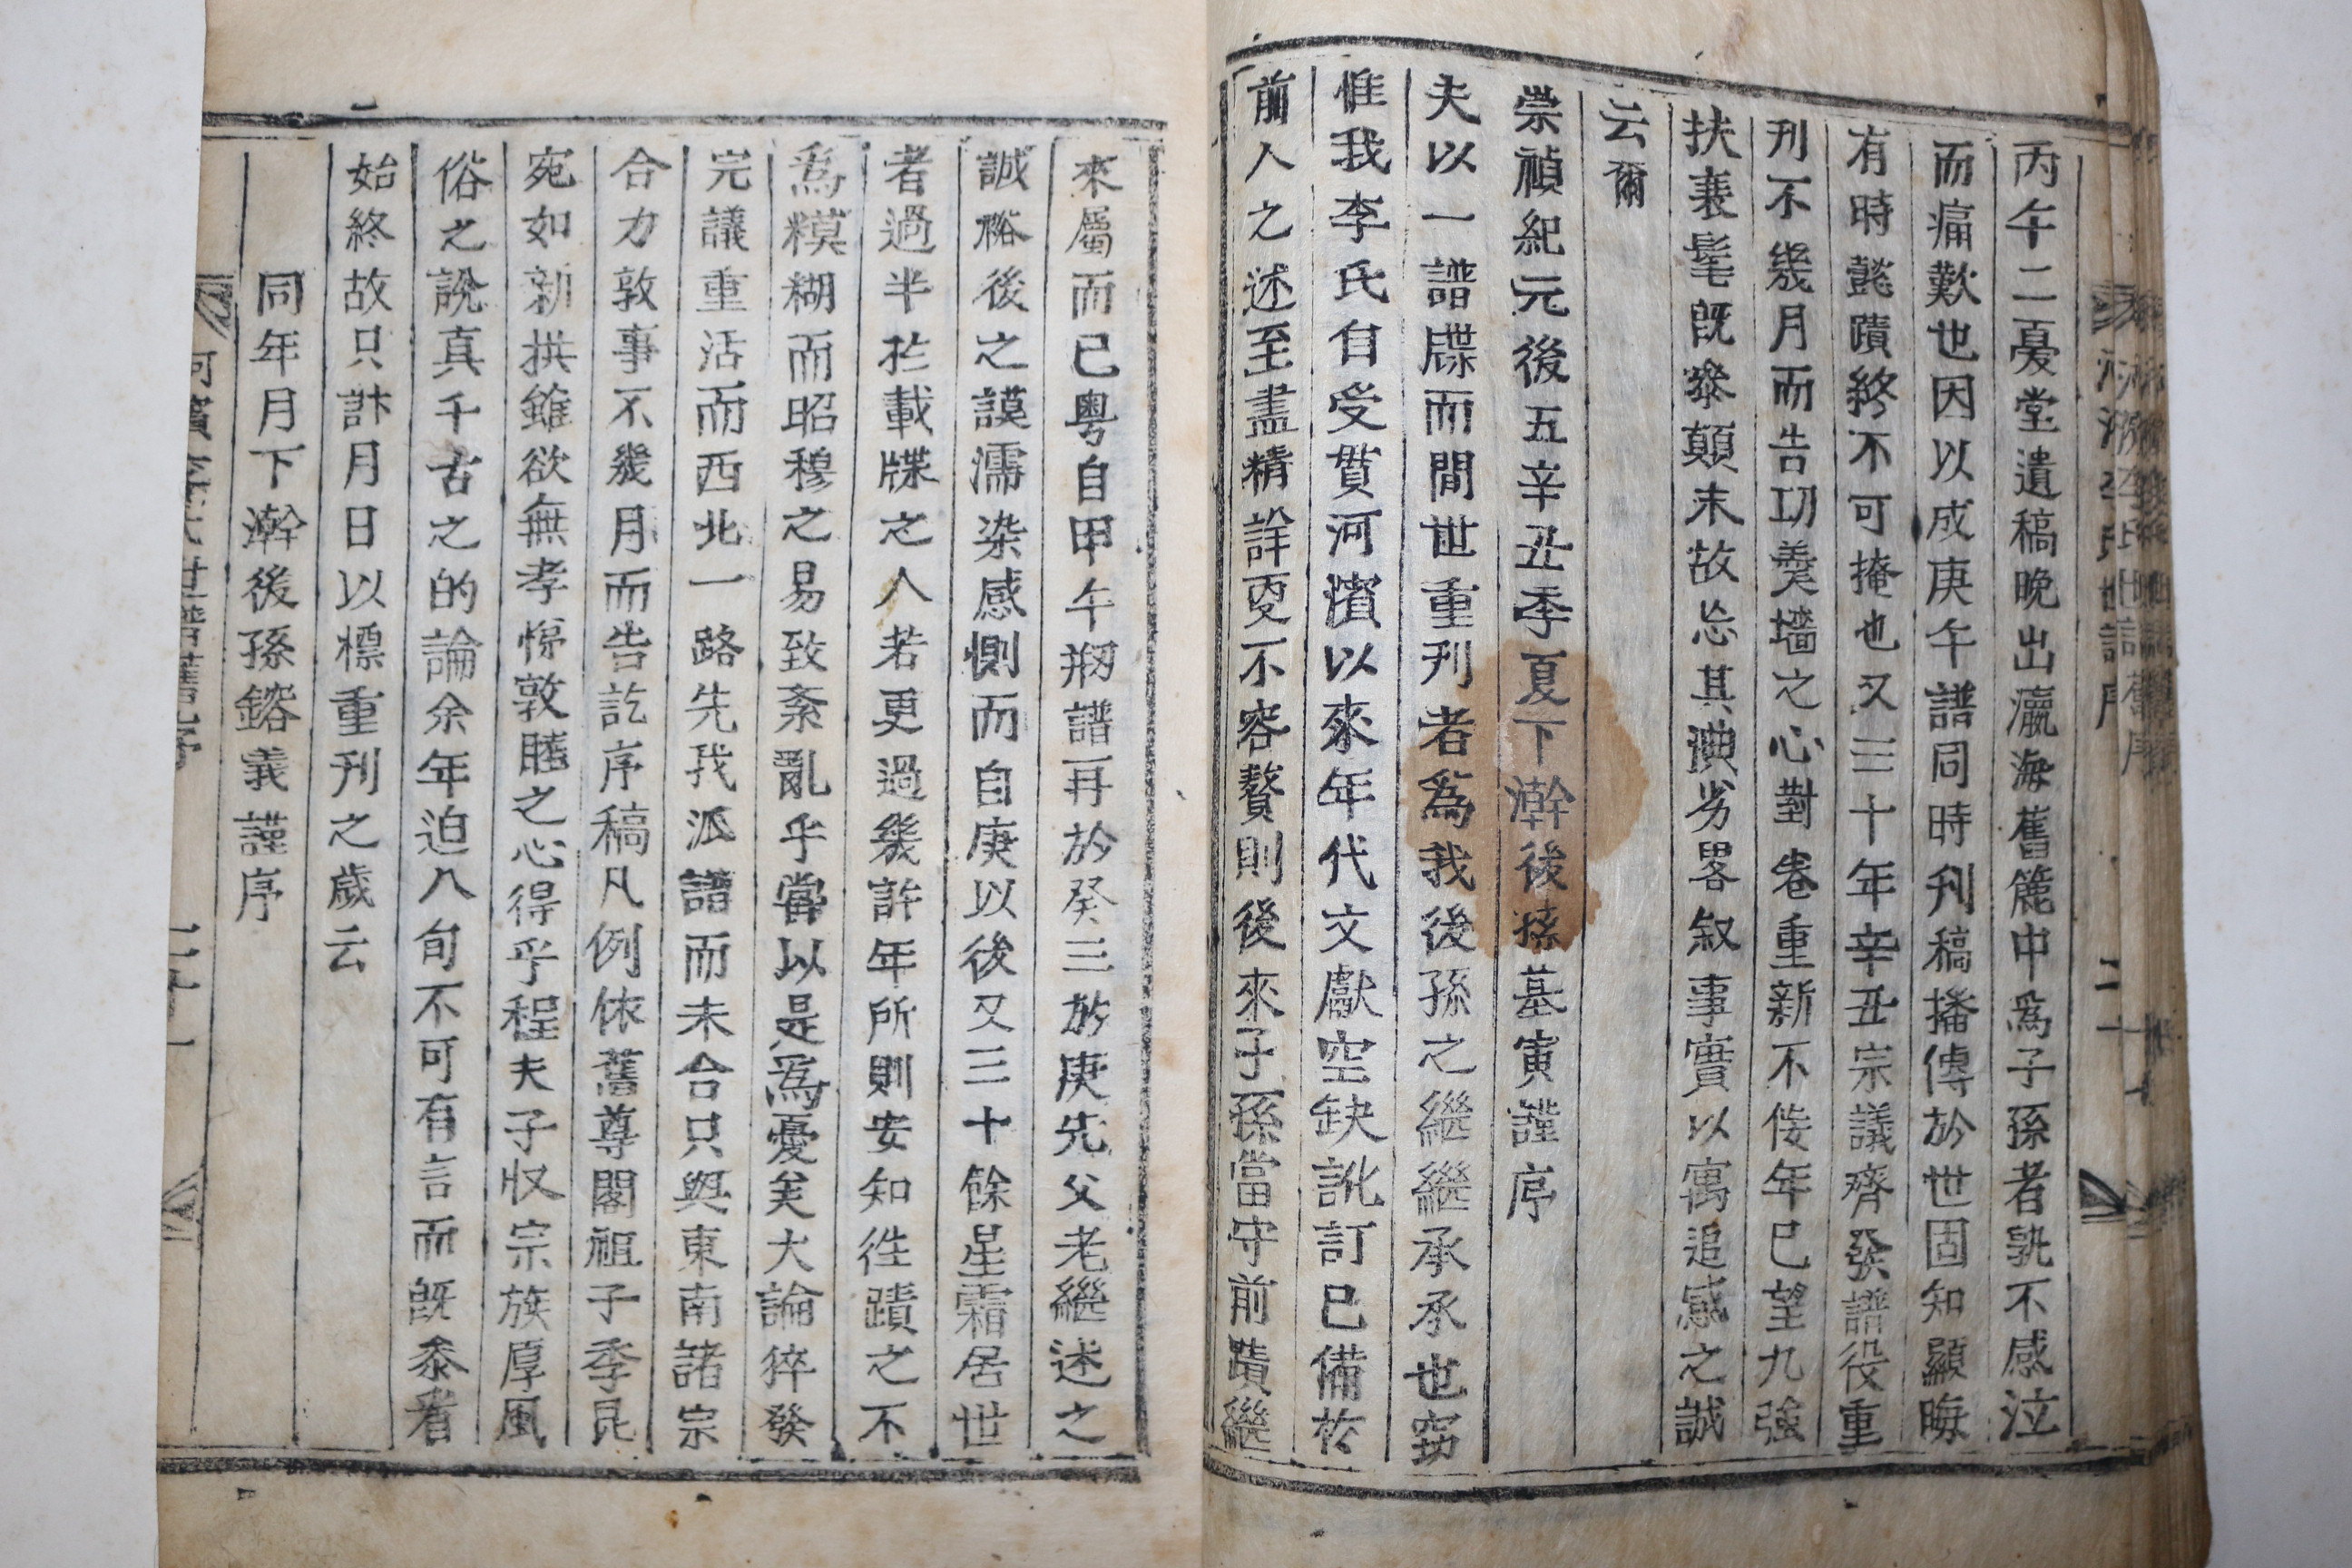 丙午二憂堂遺稿晚出瀛海舊簏中爲子孫者孰不感泣
而痛歎也因以成庚午譜同時刋稿播傳於世固知顯晦
有時懿蹟終不可掩也又三十年辛丑宗議齊發譜役重
刋不幾月而告功羹墻之心對卷重新不佞年已望九強
扶衰髦旣叅顚末故忘其淟劣畧叙事實以寓追感之誠
云爾
崇禎紀元後五辛丑季夏下澣後孫基寅謹序
夫以一譜牒而間世重刋者爲我後孫之繼繼承承也窃
惟我李氏自受貫河濱以來年代文獻空缺訛訂已備於
前人之述至盡精詳更不容贅則後來子孫當守前蹟繼
來屬而已粤自甲午刱譜再於癸三於庚先父老繼述之
誠裕後之謨濡染感惻而自庚以後又三十餘星霜居世
者過半於載牒之人若更過幾許年所則安知徃蹟之不
爲糢糊而昭穆之易致紊亂乎當以是爲憂矣大論猝發
完議重活而西北一路先我派譜而未合只與東南諸宗
合力敦事不幾月而告訖序稿凡例依舊尊閣祖子季昆
宛如新拱雖欲無孝悌敦睦之心得乎程夫子収宗族厚風
俗之說真千古之的論余年迫八旬不可有言而旣忝耆
始終故只訃月日以標重刋之歲云
同年月下澣後孫鎔義謹序
河濱李氏世譜舊序